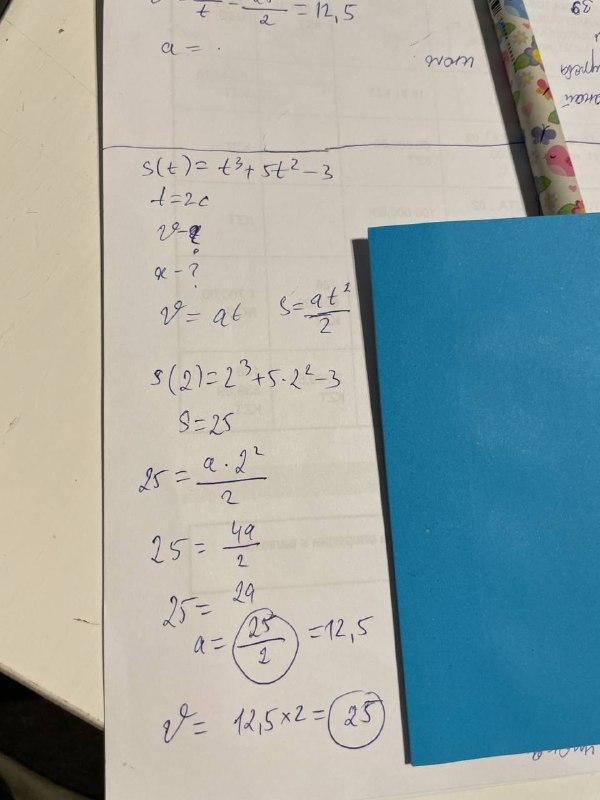 = 12,5
a = .
s(t) = t³ + 5t² - 3
t = 2c
v - ?
x - ?
v = at s = at²/2
s(2) = 2³ + 5·2² - 3
s = 25
25 = a·2²/2
25 = 4a/2
25 = 2a
a = 25/2 = 12,5
v = 12,5 × 2 = 25
39